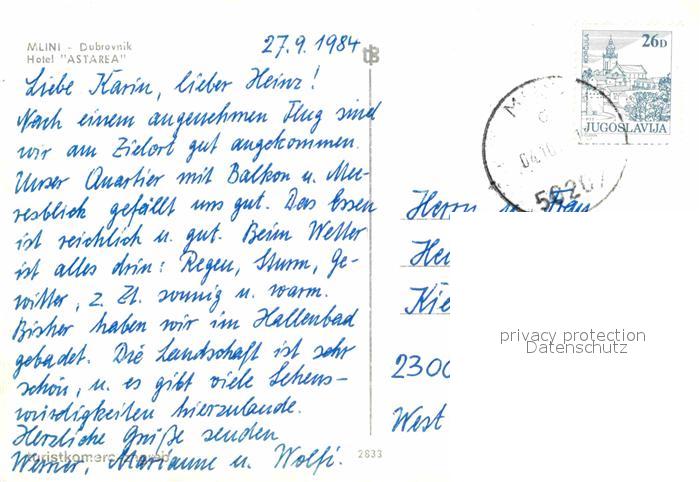 MLINI - Dubrovnik
Hotel "ASTAREA"
27.9.1984
Liebe Karin, lieber Heinz!
Nach einem angenehmen Flug sind
wir am Zielort gut angekommen.
Unser Quartier mit Balkon u. Mee-
resblick gefällt uns gut. Das Essen
ist reichlich u. gut. Beim Wetter
ist alles drin: Regen, Sturm, Ge-
witter, z. Zt. sonnig u. warm.
Bisher haben wir im Hallenbad
gebadet. Die Landschaft ist sehr
schön, u. es gibt viele Sehens-
würdigkeiten hierzulande.
Herzliche Grüße senden
Werner, Marianne u. Wolfi.
turistkomerc zagreb
2833
KORČULA
26D
JUGOSLAVIJA
04.10
50207
Herrn
Hei
Kie
2300
West
privacy protection
Datenschutz